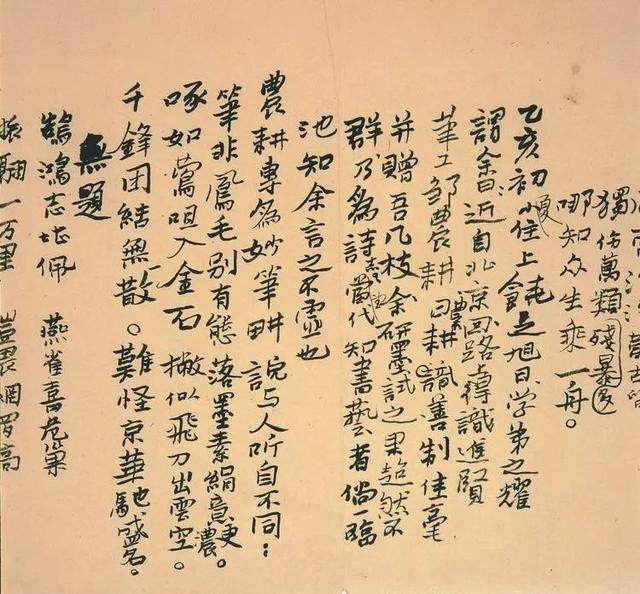 獨伤萬類殘暴
哪知众生乘一舟。
乙亥初夏小住上饒足旭日学弟之耀
謂余曰近自北京回路上得識進賢
華工邹農耕農耕識善制佳毫
并贈吾几枝余研墨試之果超然不
群乃為詩當代知書藝者倘一臨
池知余言之不虛也
農耕專為妙筆耕說与人所自不同：
筆非鳳毛別有態落墨素絹意更濃。
啄如鶯咀入金石撇似飛刀出雲空。
千鋒团結無一散。難怪京華也馳盛名。
無題
鴻志堪佩燕雀喜危巢
振翮一万里豈畏網罟高